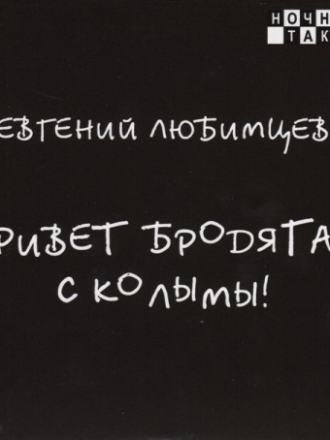 НОЧН
ТАК
ЕВГЕНИЙ ЛЮБИМЦЕВ
РИВЕТ БРОДЯГА
С КОЛЫМЫ!